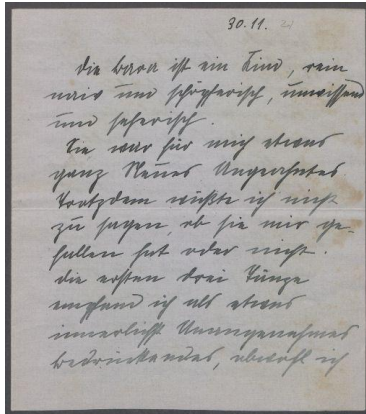 30.11.
die bara ist ein Kind, rein
naiv und schöpferisch, unwissend
und seherisch.
Sie war für mich etwas
ganz Neues Ungeahntes
Trotzdem wüßte ich nicht
zu sagen, ob sie mir ge-
fallen hat oder nicht.
die ersten drei Tänze
empfand ich als etwas
innerlichst Unangenehmes
bedrückendes, obwohl ich